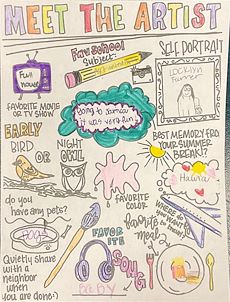 MEET THE ARTIST
Fav School
Subject:
SELF PORTRAIT
Full
House
FAVORITE MOVIE
OR TV SHOW
going to
it was very fun
EARLY
BIRD
OR
NIGHT
OWL
BEST MEMORY FROM
YOUR SUMMER
BREAK!?
FAVORITE
COLOR
do you
have any pets?
DOGS
WHERE DO
YOU WANT
TO
favorite
meal
Quietly share
with a
neighbor
when
you are done:)
FAVOR
ITE
SONG
BABY